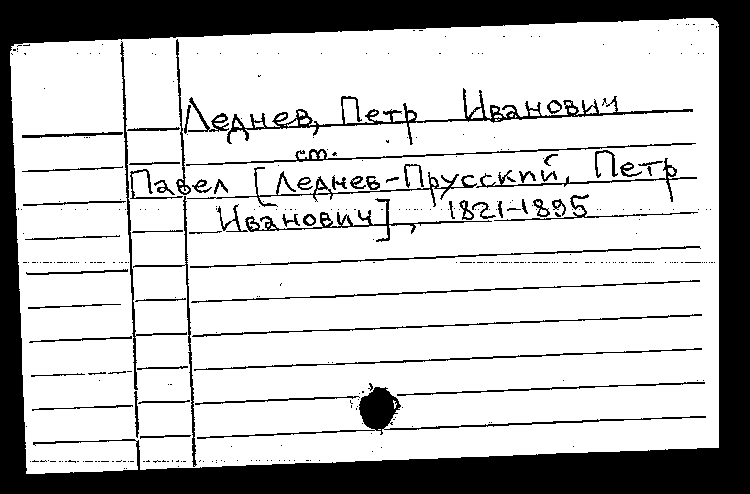 Леднев, Петр Иванович
ст.
Павел [Леднев-Прусский, Петр
Иванович], 1821-1895